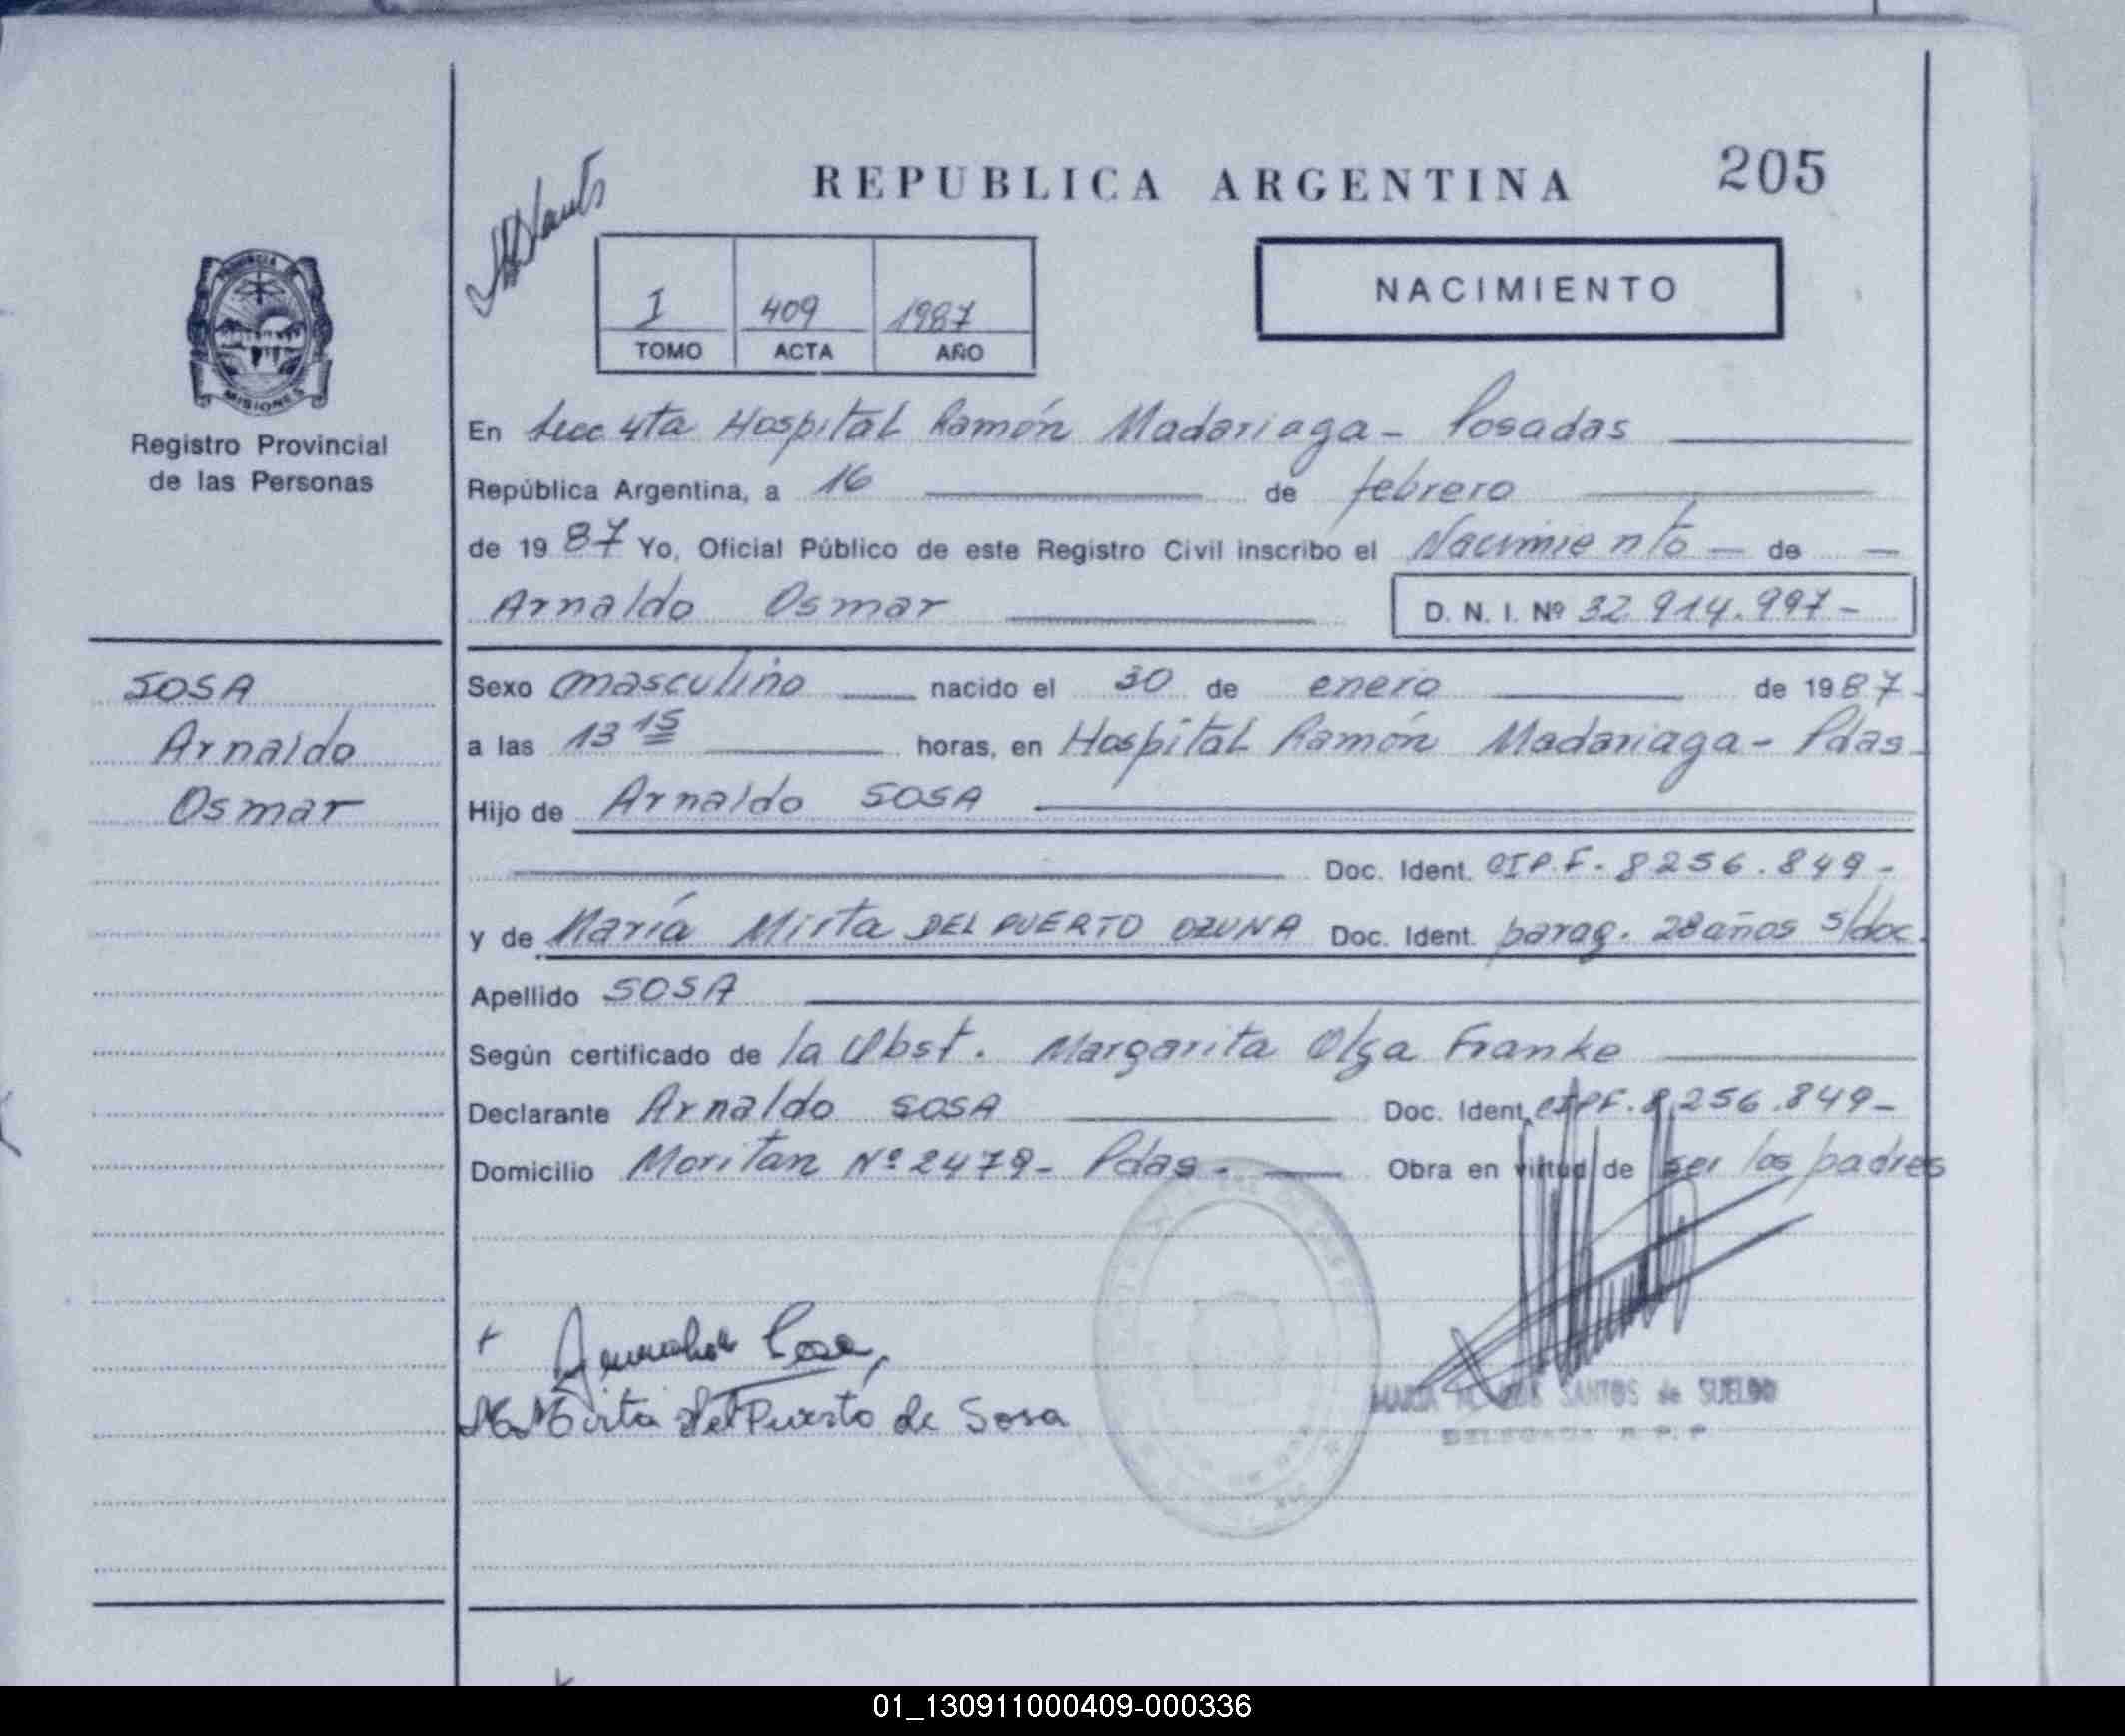 205
REPUBLICA ARGENTINA
NACIMIENTO
I 409 1987
TOMO ACTA AÑO
PROVINCIA DE
MISIONES
Registro Provincial
de las Personas
En Secc 4ta Hospital Ramón Madariaga - Posadas
República Argentina, a 16 de febrero
de 1987 Yo, Oficial Público de este Registro Civil inscribo el Nacimiento - de -
Arnaldo Osmar D. N. I. Nº 32.914.997-
SOSA
Arnaldo
Osmar
Sexo masculino nacido el 30 de enero de 1987.
a las 13 15 horas, en Hospital Ramón Madariaga - Pdas.
Hijo de Arnaldo SOSA
Doc. Ident. CIP.F. 8256.849-
y de María Mirta DEL PUERTO OZUNA Doc. Ident. parag. 28 años s/doc.
Apellido SOSA
Según certificado de la Obst. Margarita Olga Franke
Declarante Arnaldo SOSA Doc. Ident. CIPF. 8.256.849-
Domicilio Moritan Nº 2479- Pdas. - Obra en virtud de ser los padres
Sosa
Mirta del Puerto de Sosa
MARIA SANTOS de SUELDO
DELEGADA R.P.P
01_130911000409-000336